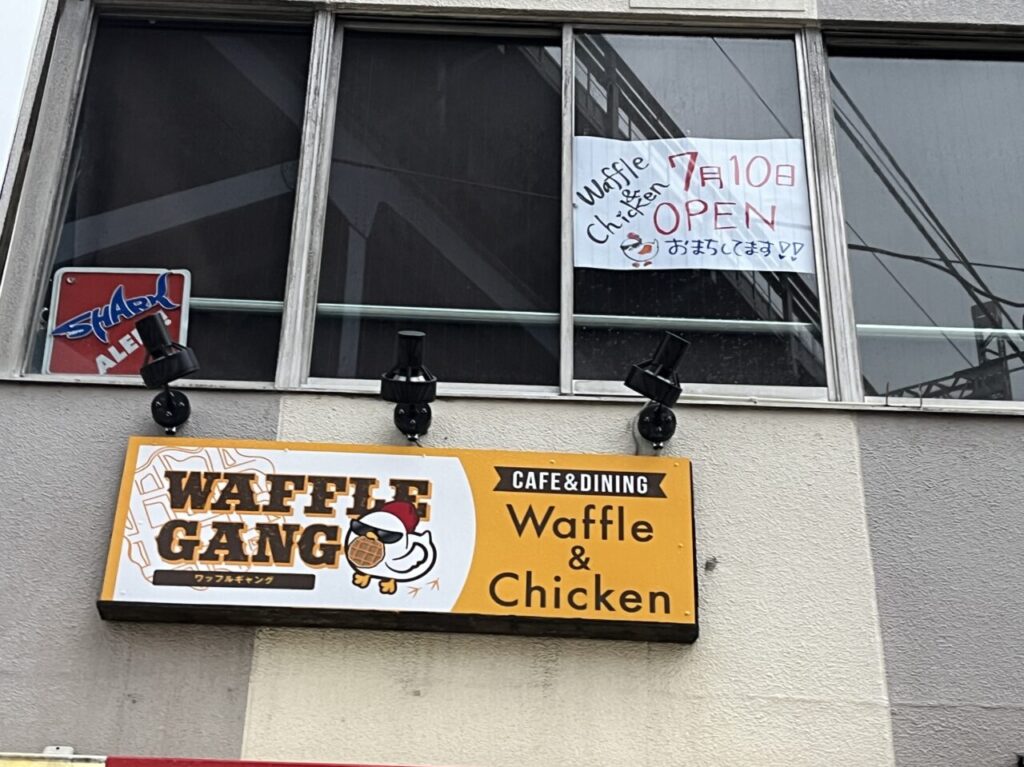 Waffle
&
Chicken
7月10日
OPEN
おまちしてます!!
SHARK
ALE
WAFFLE
GANG
ワッフルギャング
CAFE&DINING
Waffle
&
Chicken